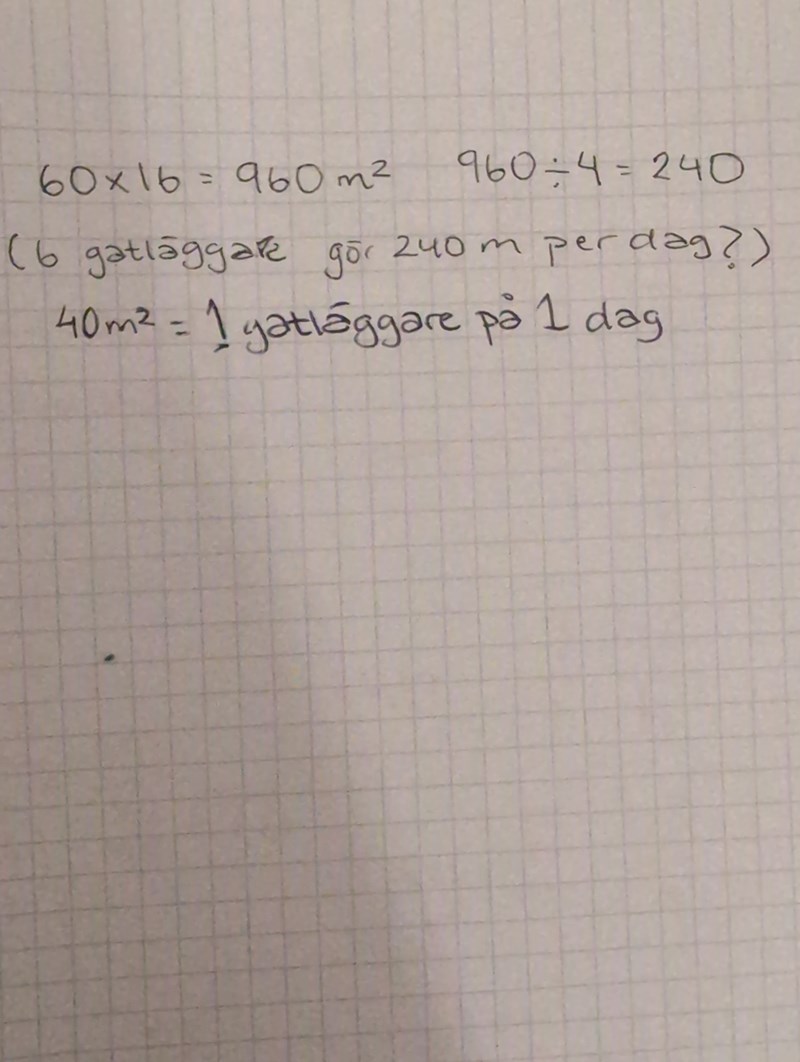 60×16 = 960 m² 960÷4 = 240
(6 gatläggare gör 240 m per dag?)
40m² = 1 gatläggare på 1 dag